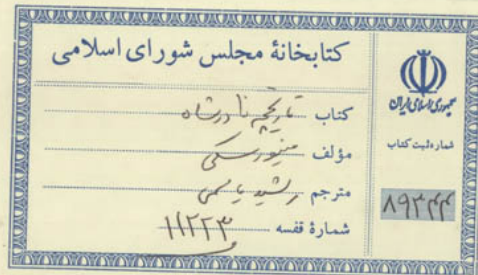 کتابخانهٔ مجلس شورای اسلامی
کتاب تاریخچه نادرشاه
مؤلف مینورسکی
مترجم رشید یاسمی
شمارهٔ قفسه ۱۱۲۲۳
جمهوری اسلامی ایران
شماره ثبت کتاب
۸۹۳۴۴